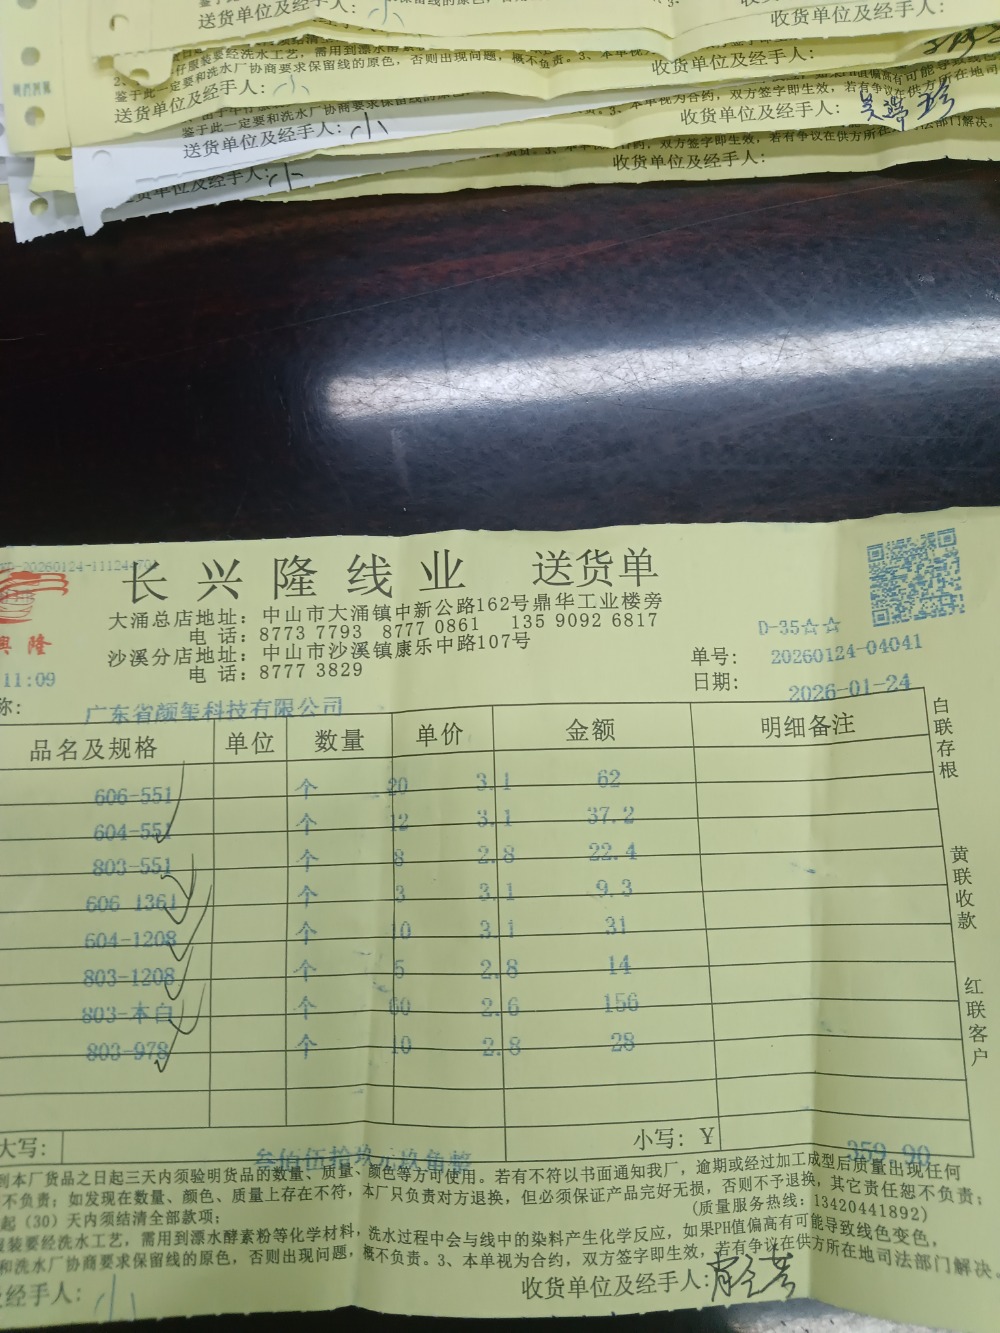 送货单位及经手人: 小
收货单位及经手人:
鉴于此一定要和洗水厂协商要求保留线的原色，否则出现问题，概不负责。3、本单视为合约，双方签字即生效
送货单位及经手人: 小
收货单位及经手人:
鉴于此一定要和洗水厂协商要求保留线的原色
送货单位及经手人: 小
收货单位及经手人:
双方签字即生效，若有争议在供方所在
法部门解决。
货单位及经手人: 小
收货单位及经手人:
20260124-111244
长兴隆线业 送货单
大涌总店地址: 中山市大涌镇中新公路162号鼎华工业楼旁
电 话: 8773 7793 8777 0861 135 9092 6817
沙溪分店地址: 中山市沙溪镇康乐中路107号
电 话: 8777 3829
興隆
11:09
D-35☆☆
单号: 20260124-04041
日期: 2026-01-24
称: 广东省颜玺科技有限公司
品名及规格 单位 数量 单价 金额 明细备注
606-551 个 20 3.1 62
604-551 个 12 3.1 37.2
803-551 个 8 2.8 22.4
606-1361 个 3 3.1 9.3
604-1208 个 10 3.1 31
803-1208 个 5 2.8 14
803-本白 个 60 2.6 156
803-978 个 10 2.8 28
大写: 叁佰伍拾玖元玖角整 小写: ￥ 359.90
白联存根
黄联收款
红联客户
到本厂货品之日起三天内须验明货品的数量、质量、颜色等方可使用。若有不符以书面通知我厂，逾期或经过加工成型后质量出现任何
不负责；如发现在数量、颜色、质量上存在不符，本厂只负责对方退换，但必须保证产品完好无损，否则不予退换，其它责任恕不负责；
起（30）天内须结清全部款项； (质量服务热线: 13420441892)
服装要经洗水工艺，需用到漂水酵素粉等化学材料，洗水过程中会与线中的染料产生化学反应，如果PH值偏高有可能导致线色变色，
和洗水厂协商要求保留线的原色，否则出现问题，概不负责。3、本单视为合约，双方签字即生效，若有争议在供方所在地司法部门解决。
经手人: 小
收货单位及经手人: